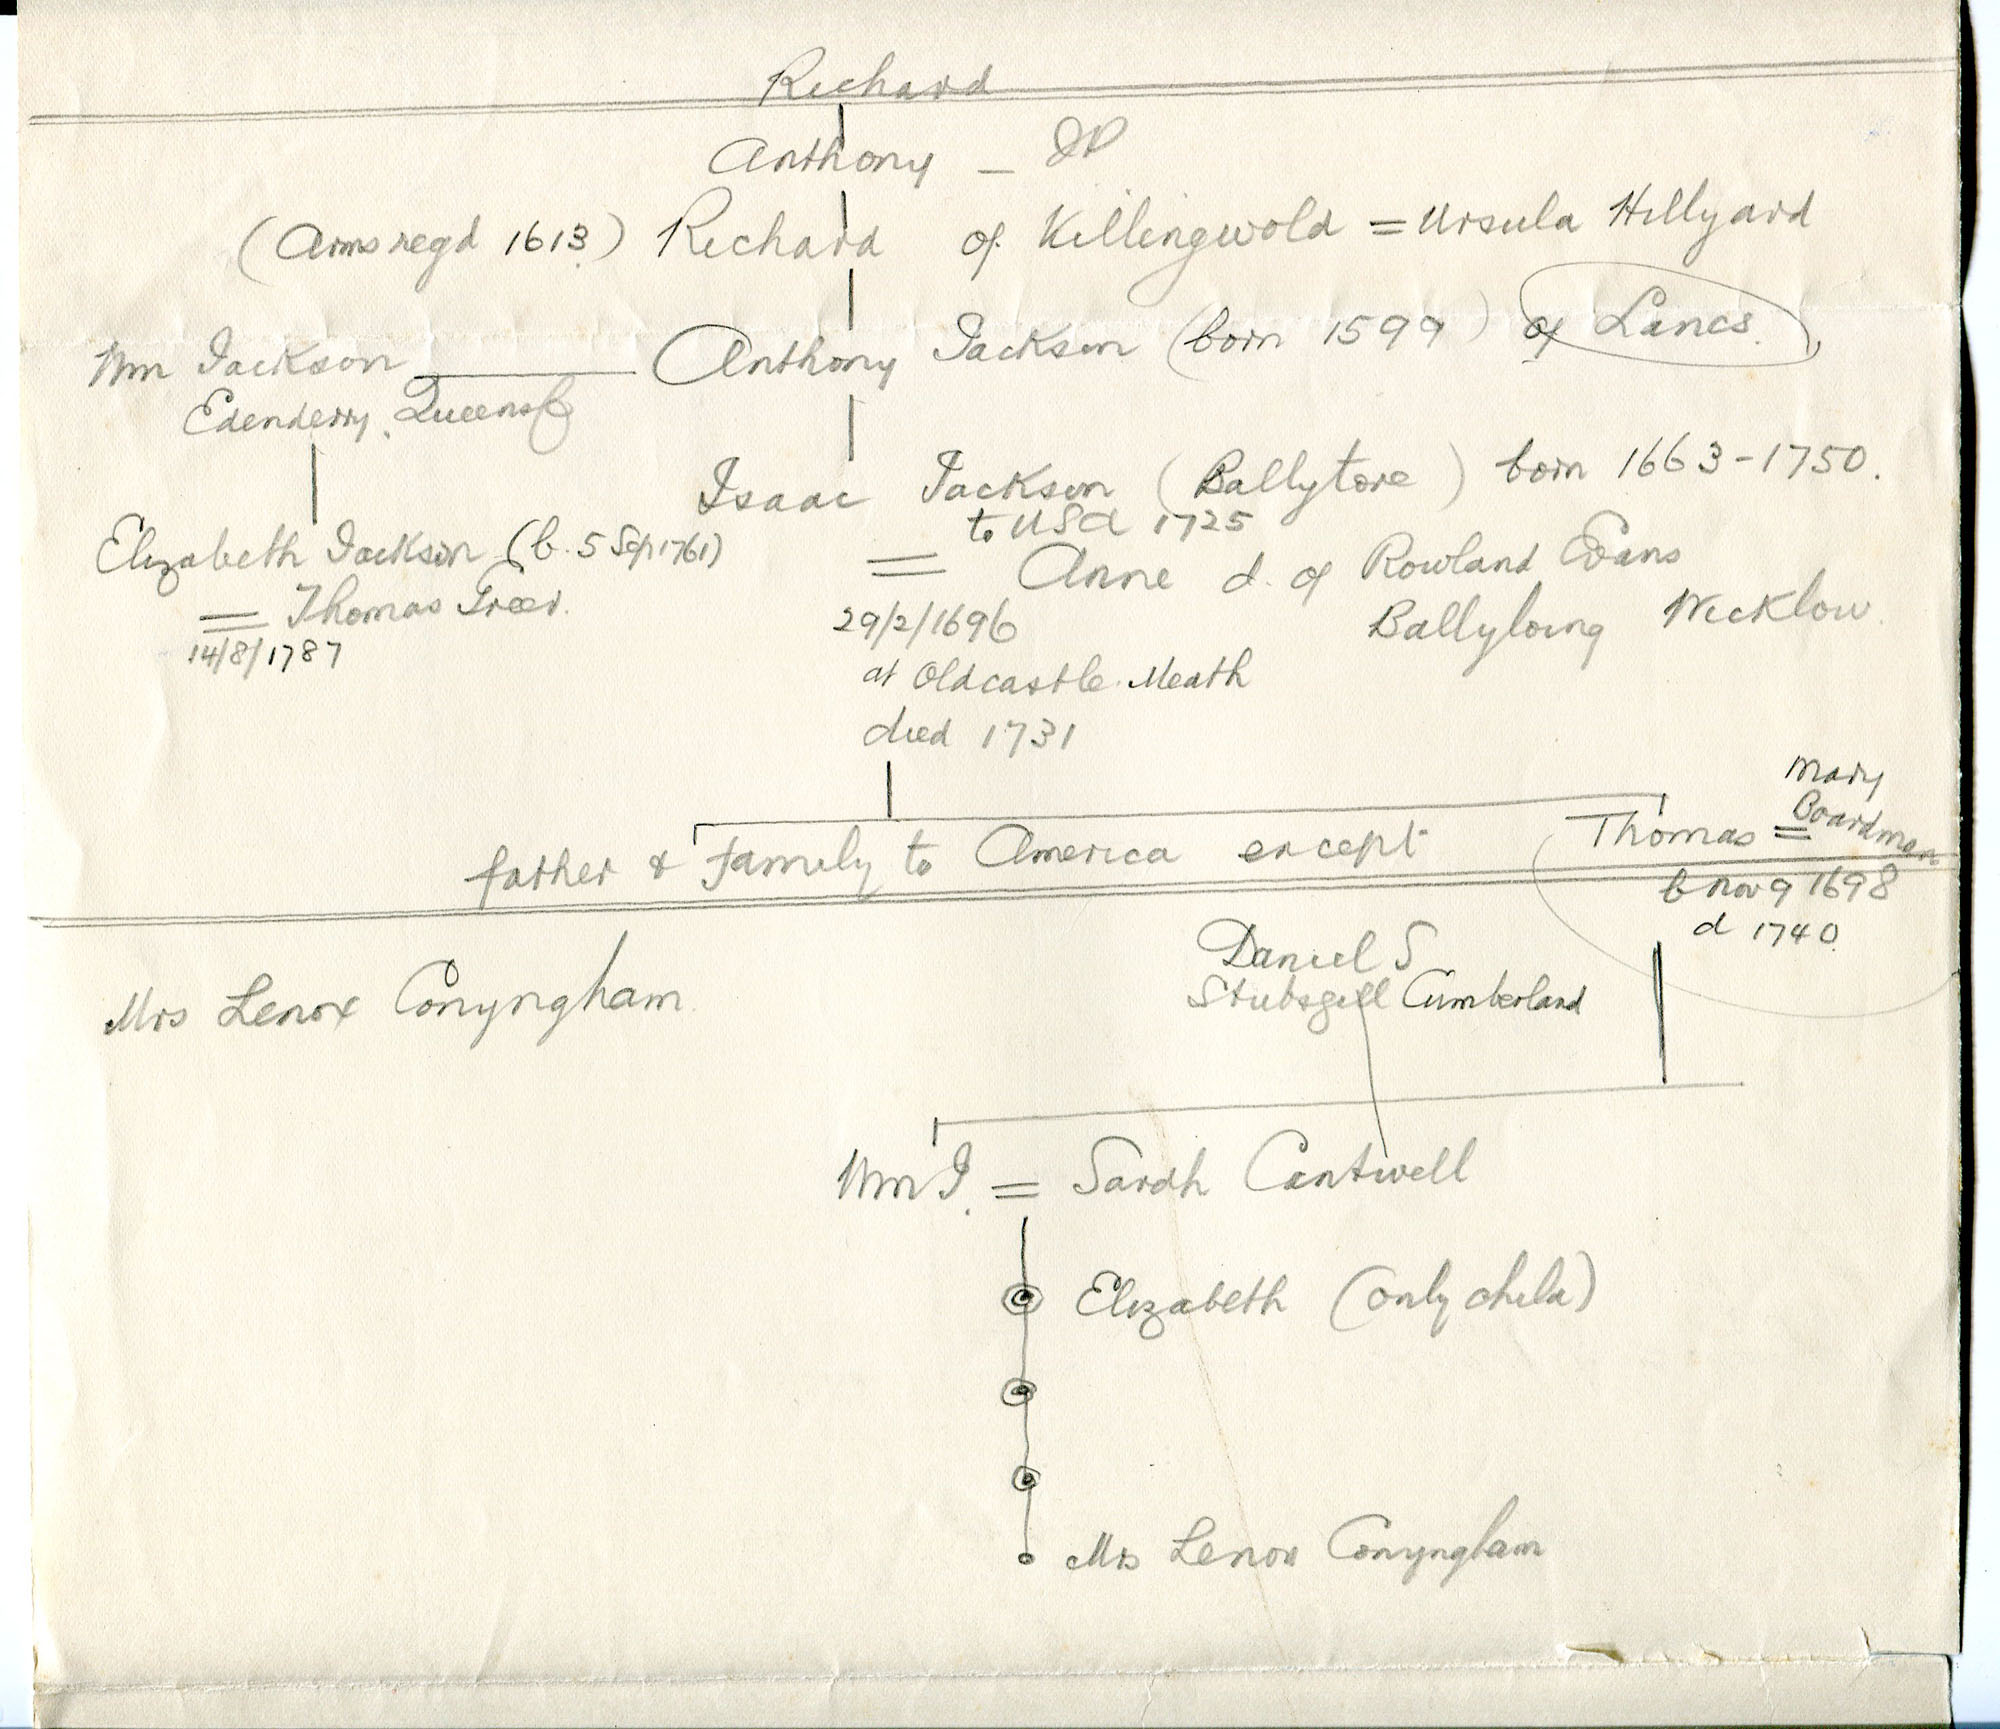 Richard
Anthony – JP
(Arms regd 1613) Richard of Killingwold = Ursula Hillyard
Wm Jackson Anthony Jackson (born 1599) of Lancs.
Edenderry, Queens Co
Isaac Jackson (Ballytore) born 1663-1750.
to USA 1725
Elizabeth Jackson (b. 5 Sep 1761)
= Anne d. of Rowland Evans
= Thomas Greer.
29/2/1696 Ballyloing Wicklow.
14/8/1787
at Oldcastle Meath
died 1731
Mary
Boardman
father & family to America except Thomas =
b Nov 9 1698
d 1740.
Daniel S
Mrs Lenox Conyngham Stubsgill Cumberland
Wm J. = Sarah Cantwell
Elizabeth (only child)
Mrs Lenox Conyngham